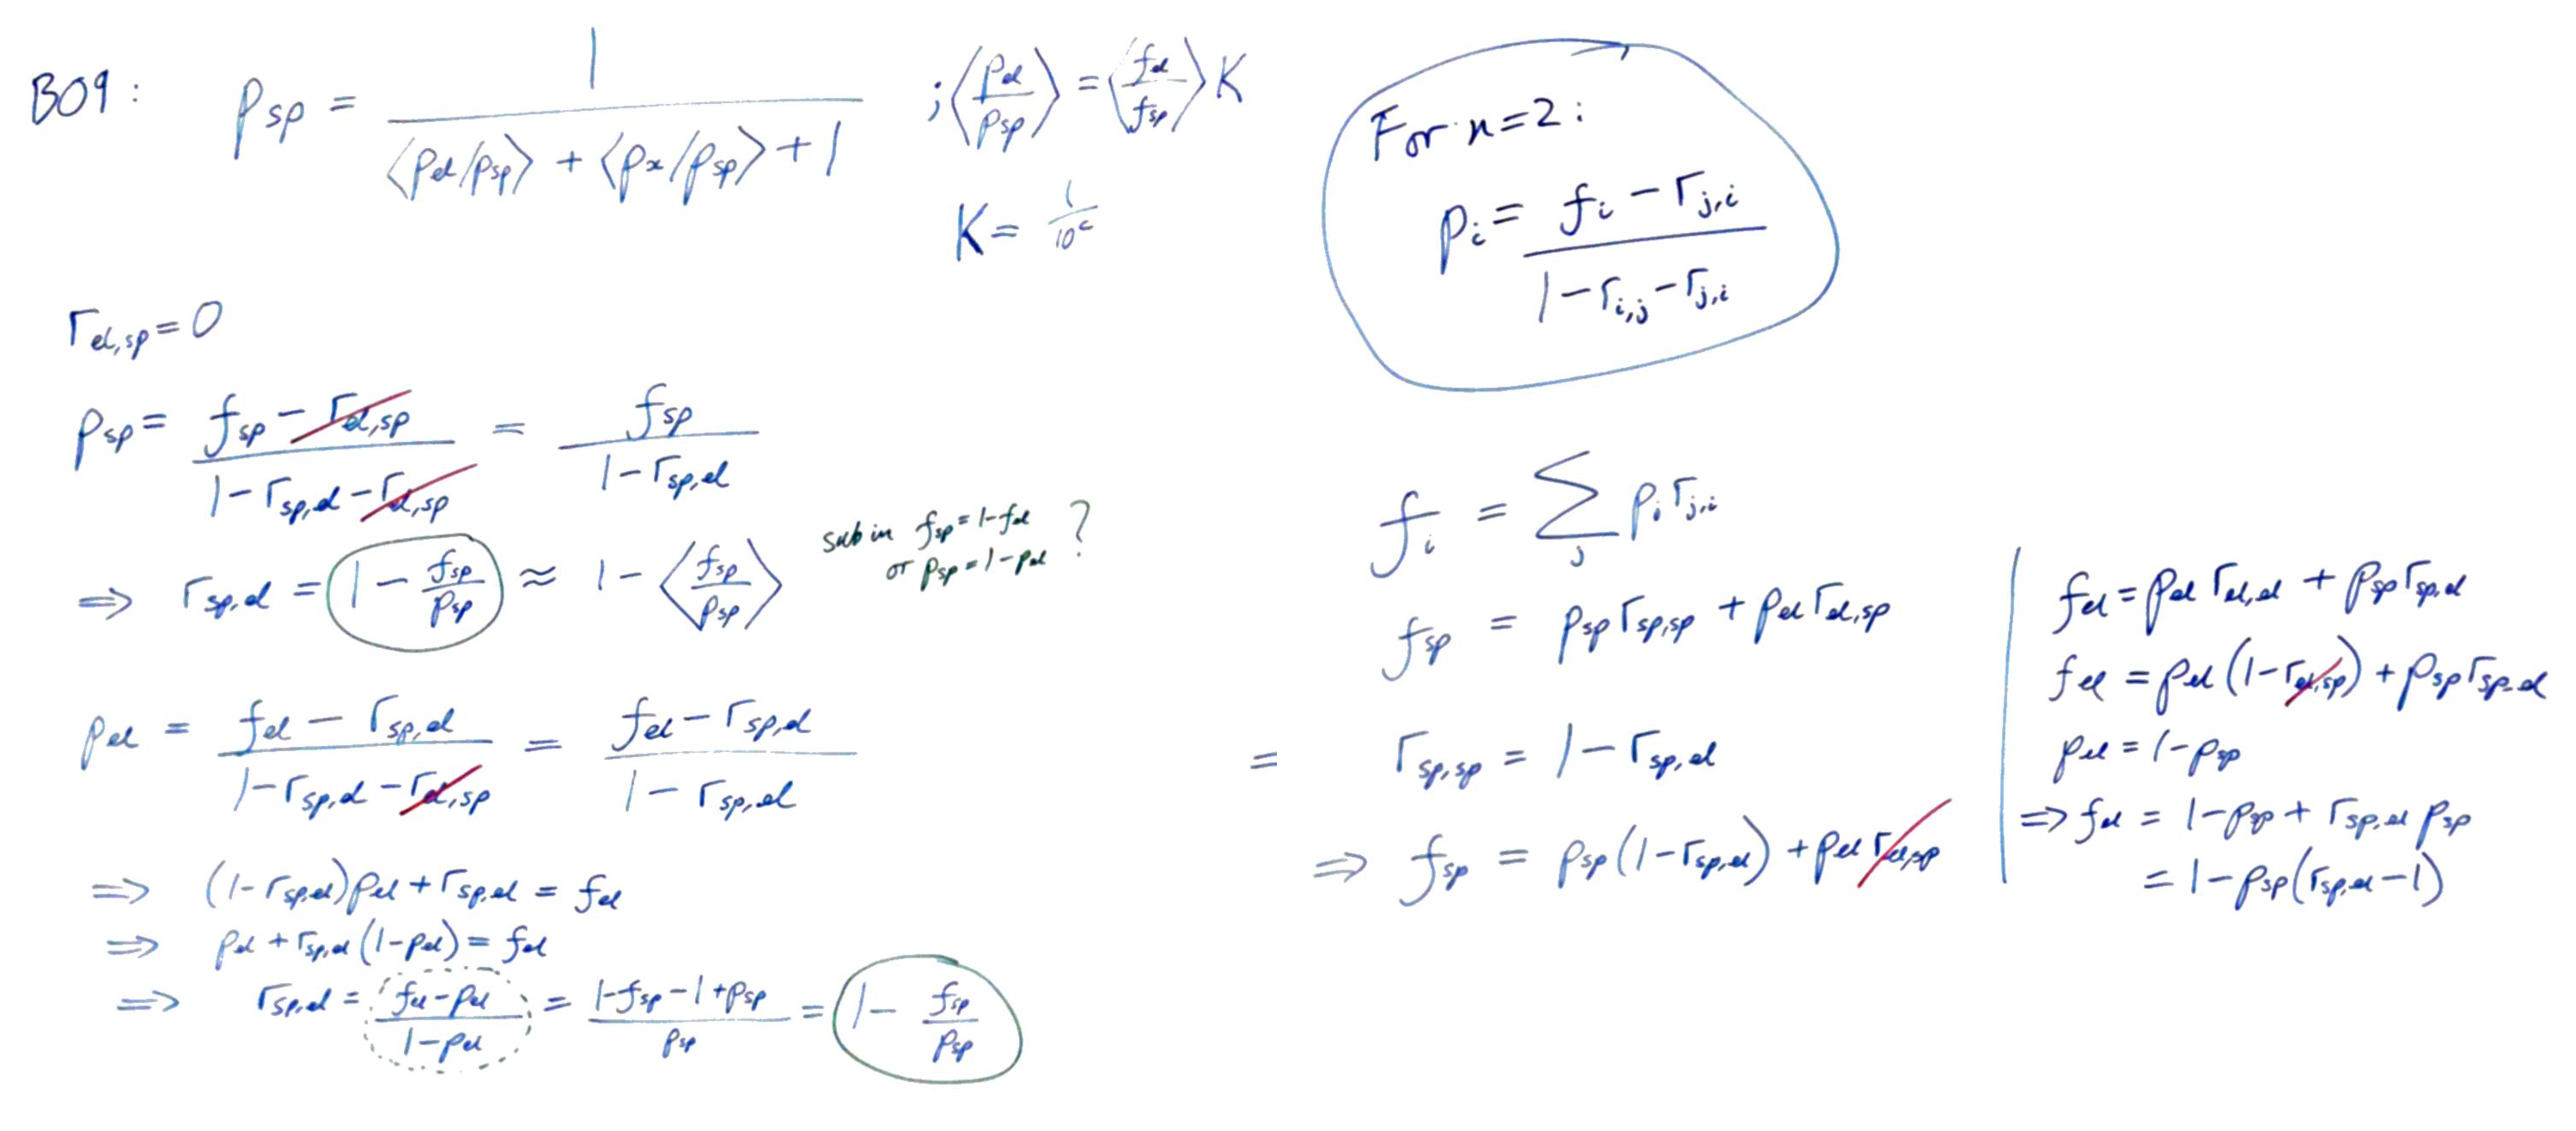 B09: p_sp = 1 / (⟨p_el/p_sp⟩ + ⟨p_x/p_sp⟩ + 1) ; ⟨p_el/p_sp⟩ = ⟨f_el/f_sp⟩ K
K = 1/10^c
For n=2:
p_i = (f_i - r_j,i) / (1 - r_i,j - r_j,i)
r_el,sp = 0
p_sp = (f_sp - r_el,sp) / (1 - r_sp,el - r_el,sp) = f_sp / (1 - r_sp,el)
⇒ r_sp,el = 1 - f_sp/p_sp ≈ 1 - ⟨f_sp/p_sp⟩
sub in f_sp = 1-f_el
or p_sp = 1-p_el ?
p_el = (f_el - r_sp,el) / (1 - r_sp,el - r_el,sp) = (f_el - r_sp,el) / (1 - r_sp,el)
⇒ (1 - r_sp,el) p_el + r_sp,el = f_el
⇒ p_el + r_sp,el (1 - p_el) = f_el
⇒ r_sp,el = (f_el - p_el) / (1 - p_el) = (1 - f_sp - 1 + p_sp) / p_sp = 1 - f_sp/p_sp
f_i = Σ_j p_i r_j,i
f_sp = p_sp r_sp,sp + p_el r_el,sp
= r_sp,sp = 1 - r_sp,el
⇒ f_sp = p_sp (1 - r_sp,el) + p_el r_el,sp
f_el = p_el r_el,el + p_sp r_sp,el
f_el = p_el (1 - r_el,sp) + p_sp r_sp,el
p_el = 1 - p_sp
⇒ f_el = 1 - p_sp + r_sp,el p_sp
= 1 - p_sp (r_sp,el - 1)